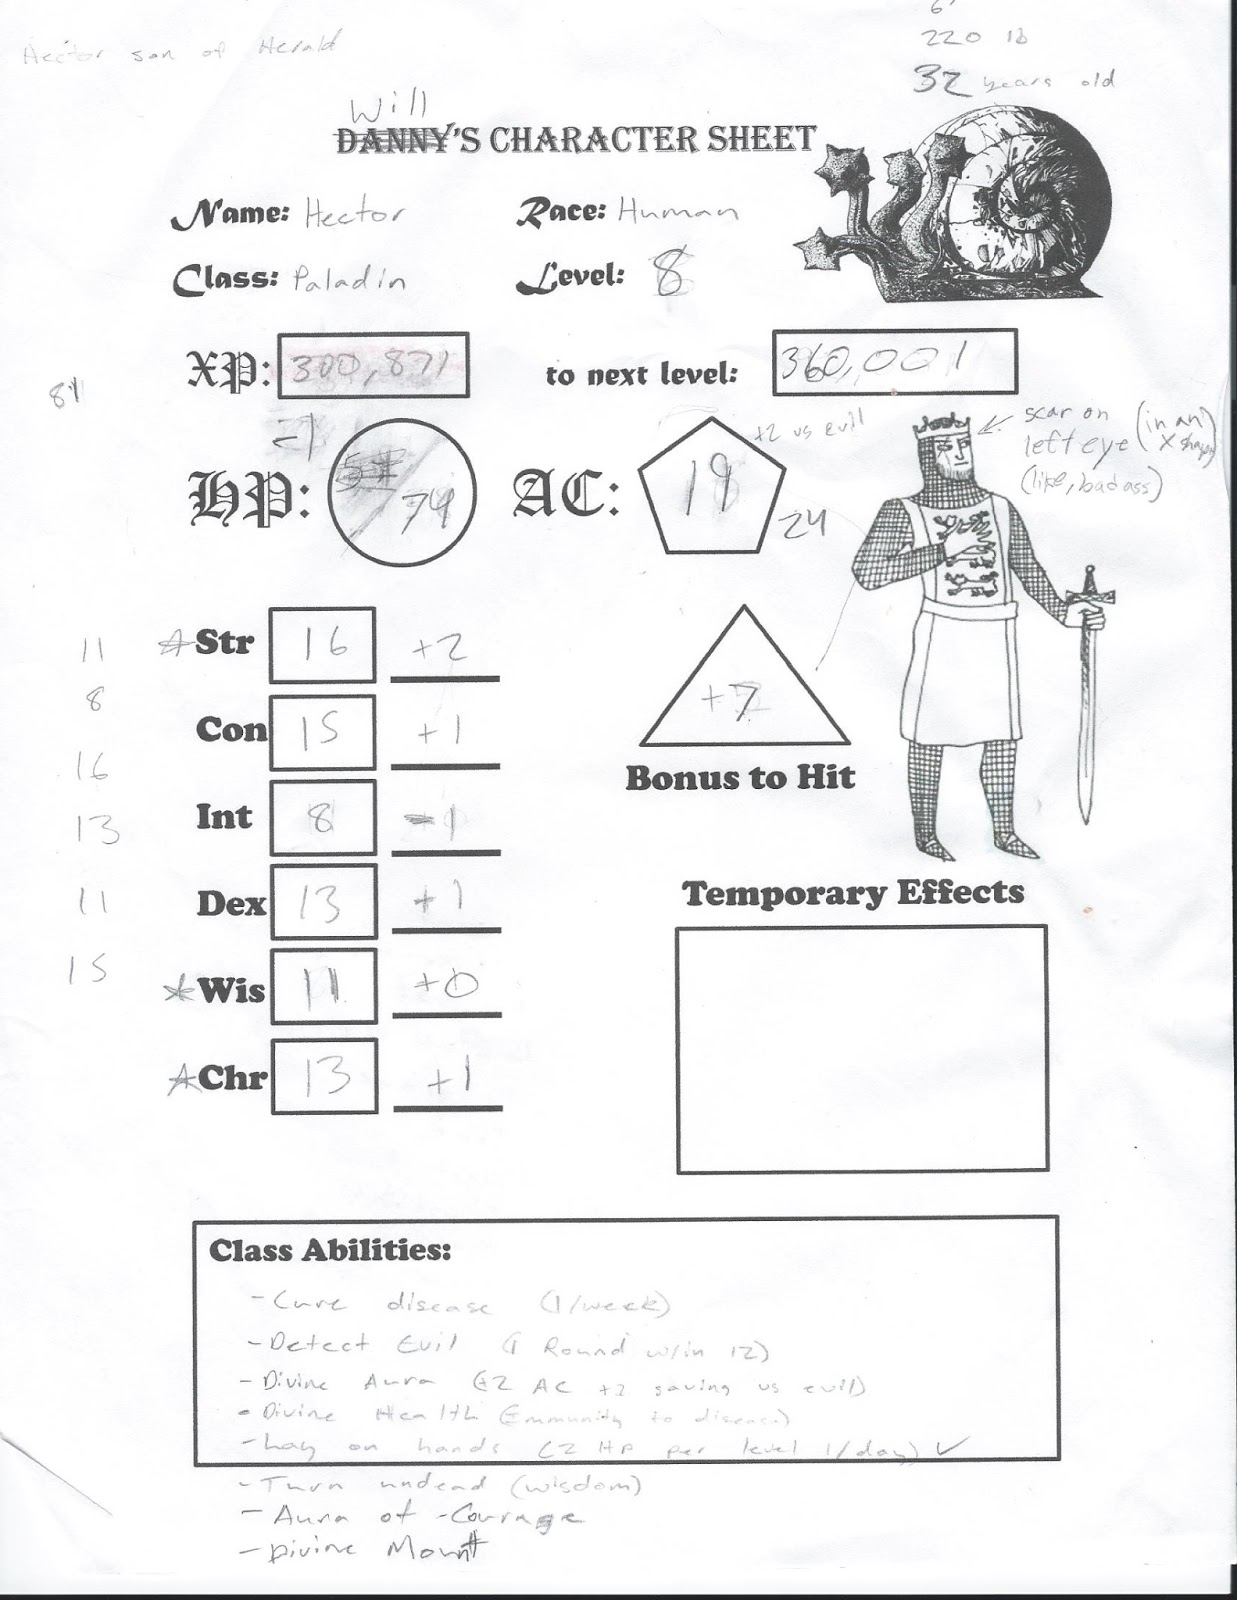 6'
Hector son of Herald
220 lb
32 years old
Will
DANNY'S CHARACTER SHEET
Name: Hector
Race: Human
Class: Paladin
Level: 8
XP: 300,871
to next level: 360,001
81
-1
HP: /74
AC: 19
+2 vs evil
24
scar on
left eye (in an
X shape)
(like, badass)
11
☆Str 16 +2
8
Con 15 +1
16
Int 8 -1
13
Dex 13 +1
11
☆Wis 11 +0
15
☆Chr 13 +1
+7
Bonus to Hit
Temporary Effects
Class Abilities:
- Cure disease (1/week)
- Detect Evil (1 Round w/in 12)
- Divine Aura (+2 AC +2 saving vs evil)
- Divine Health (Emmunity to disease)
- Lay on hands (2 HP per level 1/day) ✓
- Turn undead (wisdom)
- Aura of -Courage
- Divine Mount